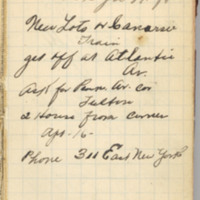 New Lots & Canarsie
Train
get off at Atlantic
Av.
Ask for Penn Av. cor
Fulton
2 House from corner
Apt-16-
Phone 311 East New York